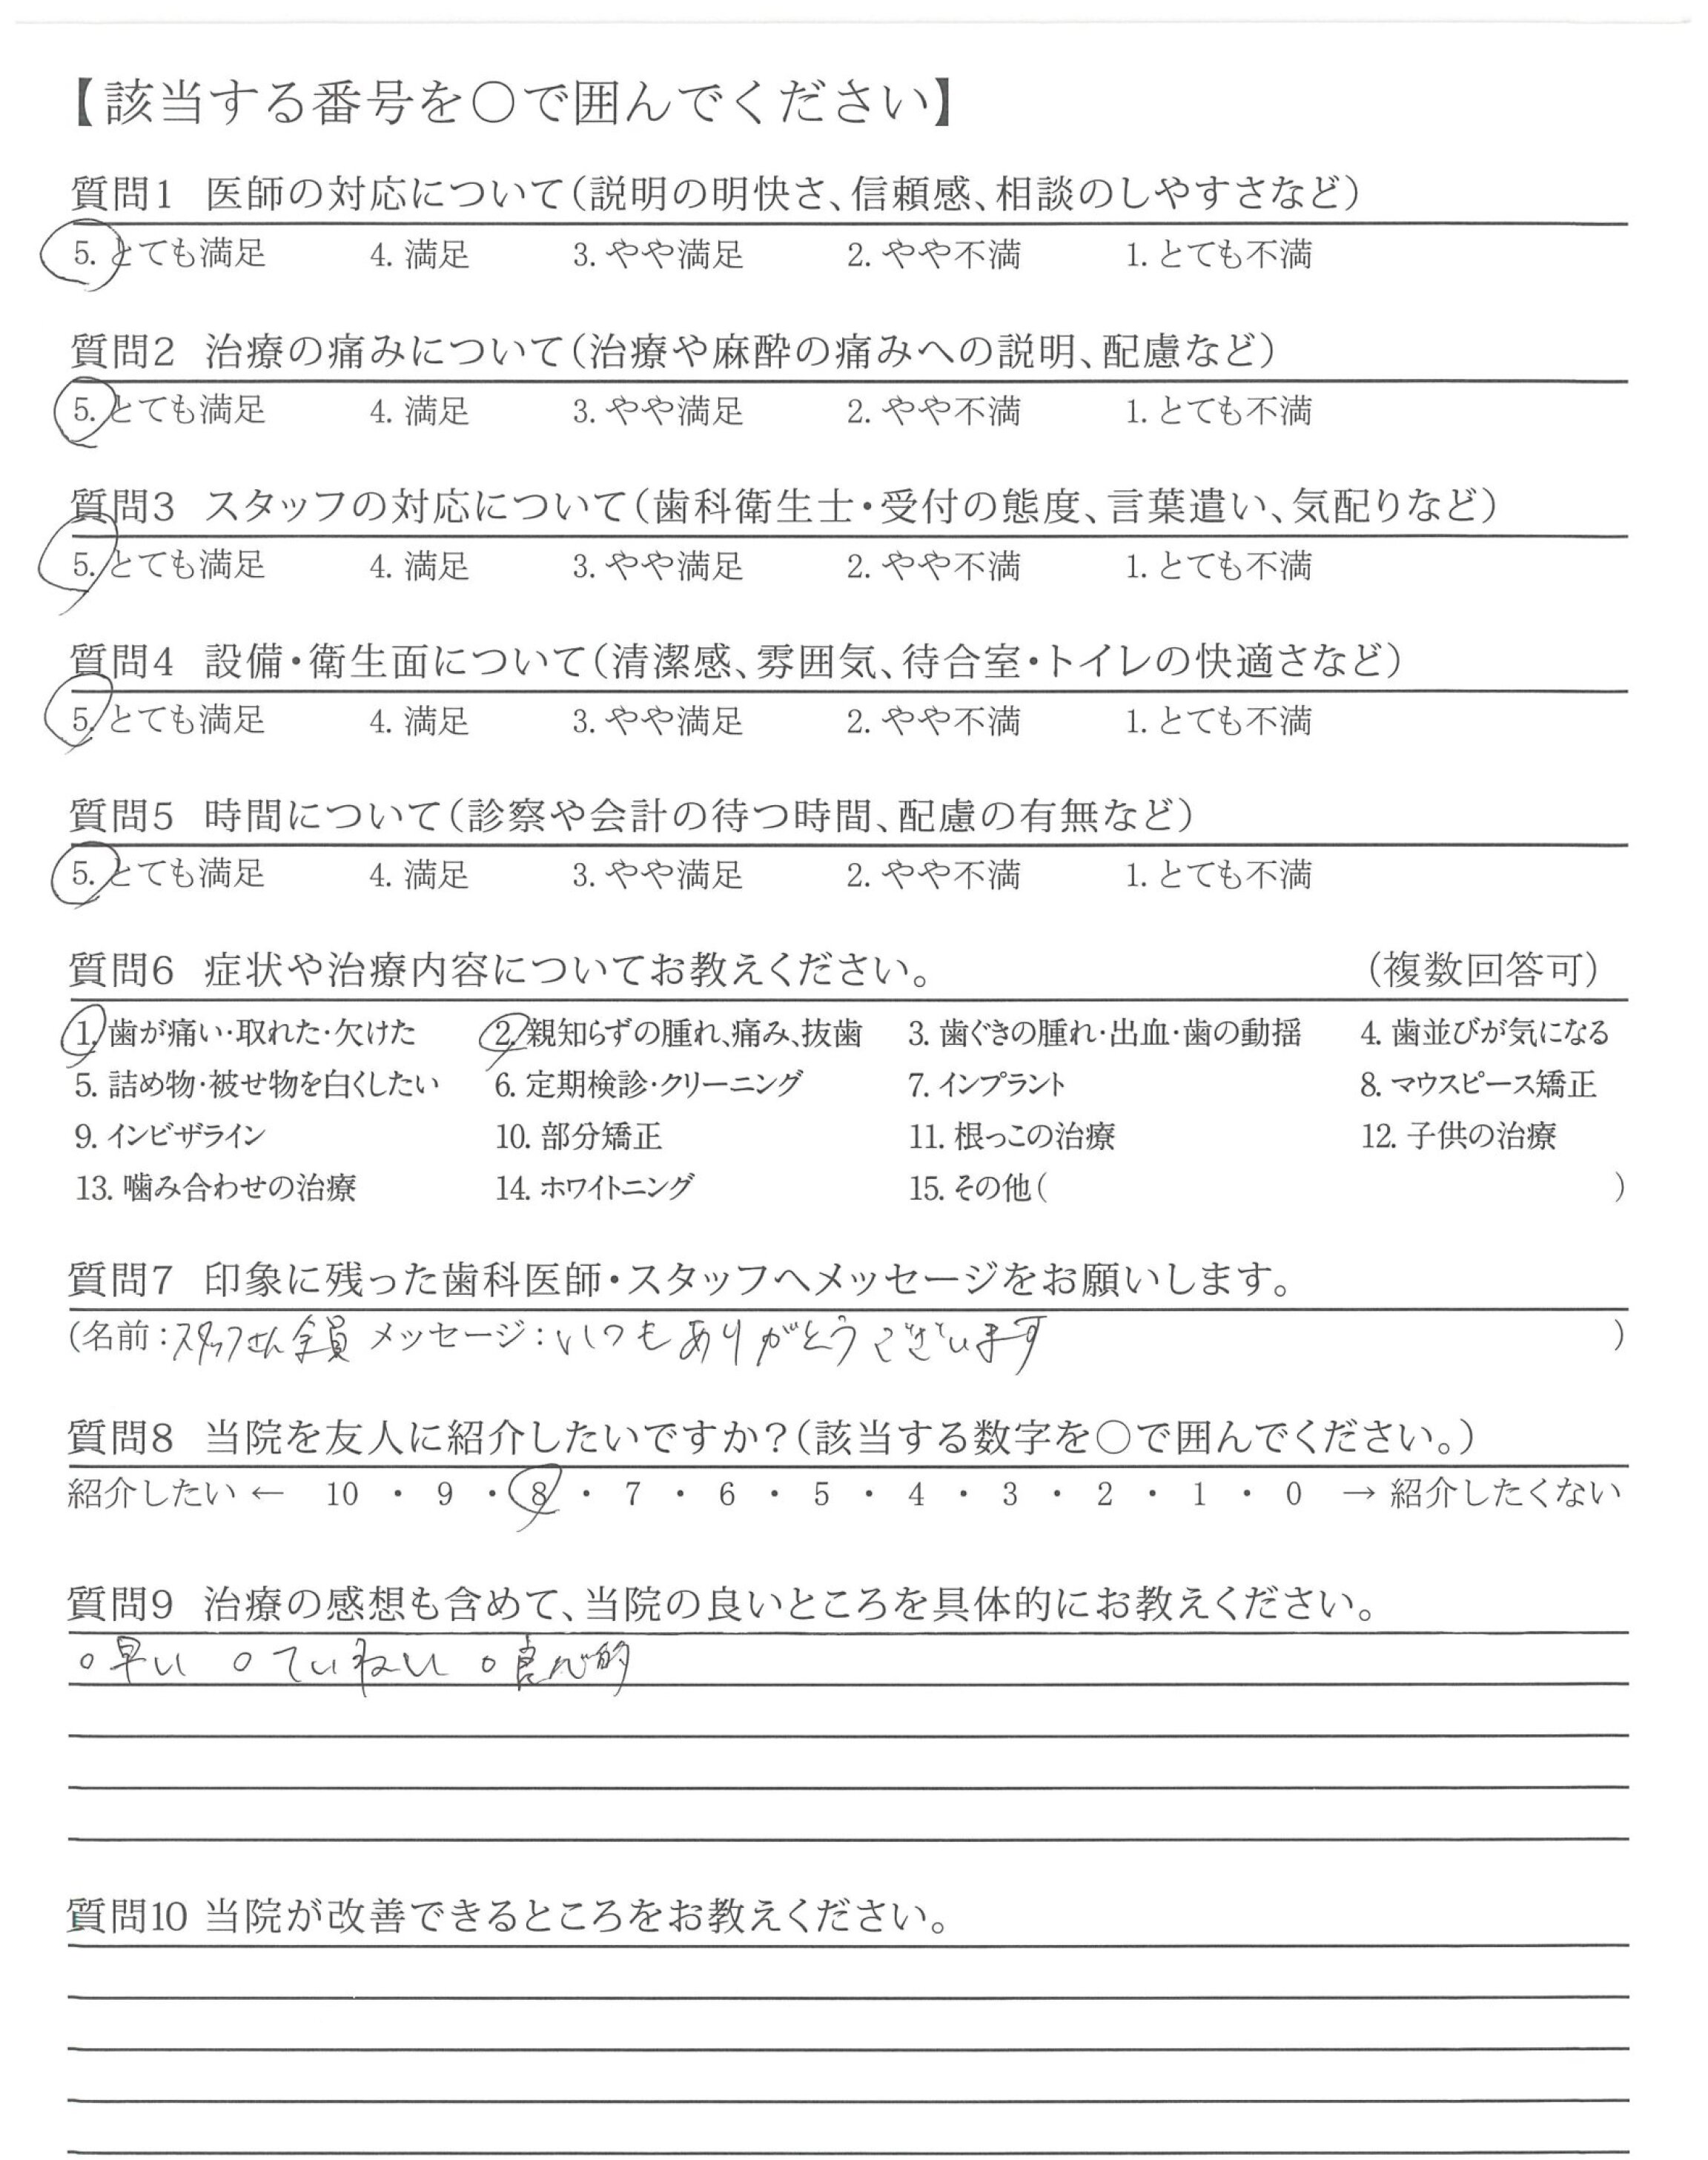 【該当する番号を○で囲んでください】
質問1 医師の対応について(説明の明快さ、信頼感、相談のしやすさなど)
5. とても満足 4. 満足 3. やや満足 2. やや不満 1. とても不満
質問2 治療の痛みについて(治療や麻酔の痛みへの説明、配慮など)
5. とても満足 4. 満足 3. やや満足 2. やや不満 1. とても不満
質問3 スタッフの対応について(歯科衛生士・受付の態度、言葉遣い、気配りなど)
5. とても満足 4. 満足 3. やや満足 2. やや不満 1. とても不満
質問4 設備・衛生面について(清潔感、雰囲気、待合室・トイレの快適さなど)
5. とても満足 4. 満足 3. やや満足 2. やや不満 1. とても不満
質問5 時間について(診察や会計の待つ時間、配慮の有無など)
5. とても満足 4. 満足 3. やや満足 2. やや不満 1. とても不満
質問6 症状や治療内容についてお教えください。 (複数回答可)
1. 歯が痛い・取れた・欠けた 2. 親知らずの腫れ、痛み、抜歯 3. 歯ぐきの腫れ・出血・歯の動揺 4. 歯並びが気になる
5. 詰め物・被せ物を白くしたい 6. 定期検診・クリーニング 7. インプラント 8. マウスピース矯正
9. インビザライン 10. 部分矯正 11. 根っこの治療 12. 子供の治療
13. 噛み合わせの治療 14. ホワイトニング 15. その他( )
質問7 印象に残った歯科医師・スタッフへメッセージをお願いします。
(名前:スタッフさん全員 メッセージ:いつもありがとうございます )
質問8 当院を友人に紹介したいですか?(該当する数字を○で囲んでください。)
紹介したい ← 10 ・ 9 ・ 8 ・ 7 ・ 6 ・ 5 ・ 4 ・ 3 ・ 2 ・ 1 ・ 0 → 紹介したくない
質問9 治療の感想も含めて、当院の良いところを具体的にお教えください。
○早い ○ていねい ○良心的
質問10 当院が改善できるところをお教えください。